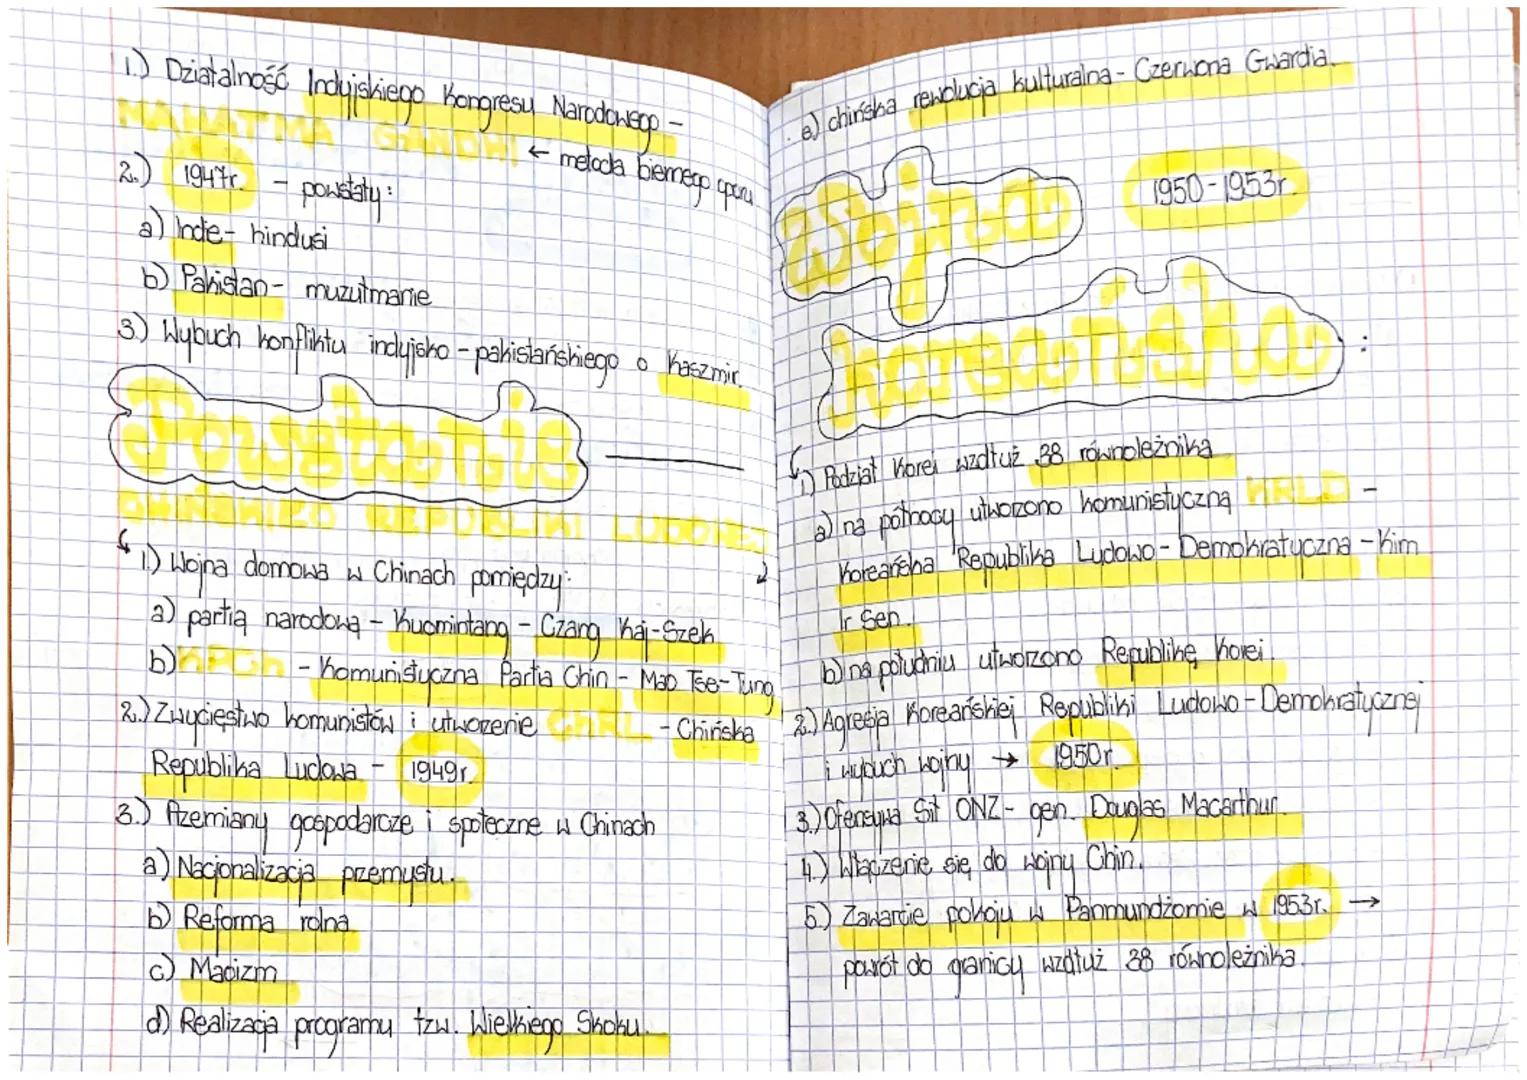 1.) Działalność Indyjskiego Kongresu Narodowego -
MAHATMA GANDHI ← metoda biernego oporu
2.) 1947r. - powstały:
a) Indie - hindusi
b) Pakistan - muzułmanie
3.) Wybuch konfliktu indyjsko - pakistańskiego o Kaszmir.
Powstanie
CHIŃSKIEJ REPUBLIKI LUDOWEJ
1.) Wojna domowa w Chinach pomiędzy:
a) partią narodową - Kuomintang - Czang Kaj-Szek
b) KPCh - Komunistyczna Partia Chin - Mao Tse-Tung
2.) Zwycięstwo komunistów i utworzenie ChRL - Chińska
Republika Ludowa - 1949r.
3.) Przemiany gospodarcze i społeczne w Chinach
a) Nacjonalizacja przemysłu.
b) Reforma rolna
c) Maoizm
d) Realizacja programu tzw. Wielkiego Skoku.
e) chińska rewolucja kulturalna - Czerwona Gwardia.
Wojna 1950-1953r.
koreańska :
1) Podział Korei wzdłuż 38 równoleżnika
a) na północy utworzono komunistyczną KRLD -
Koreańska Republika Ludowo - Demokratyczna - Kim
Ir Sen.
b) na południu utworzono Republikę Korei.
2.) Agresja Koreańskiej Republiki Ludowo - Demokratycznej
i wybuch wojny → 1950r.
3.) Ofensywa Sił ONZ - gen. Douglas Macarthur.
4.) Włączenie się do wojny Chin.
5.) Zawarcie pokoju w Panmundżomie w 1953r. →
powrót do granicy wzdłuż 38 równoleżnika.